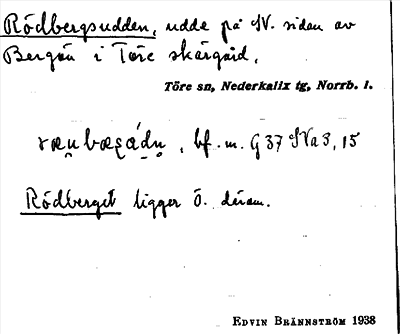 Rödbergsudden, udde på SV. sidan av
Bergön i Töre skärgård,
Töre sn, Nederkalix tg, Norrb. l.
bf. m. G 37 SVa3, 15
Rödberget ligger Ö. därom.
EDVIN BRÄNNSTRÖM 1938